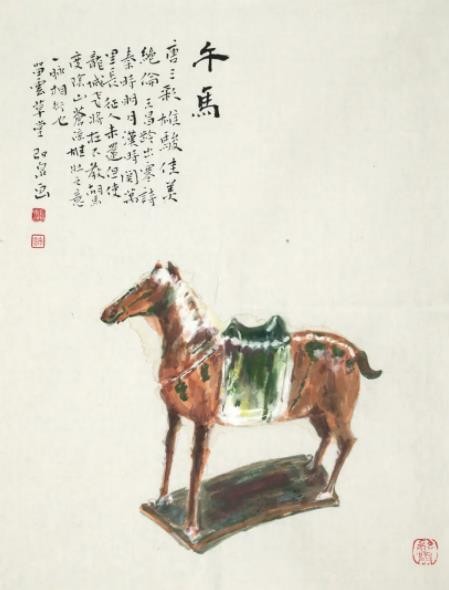 午馬
唐三彩雄駿佳美
絕倫王昌齡出塞詩
秦時明月漢時關萬
里長征人未還但使
龍城飛將在不教胡馬
度陰山蒼涼雄壯之意
一脉相承也
雲草堂